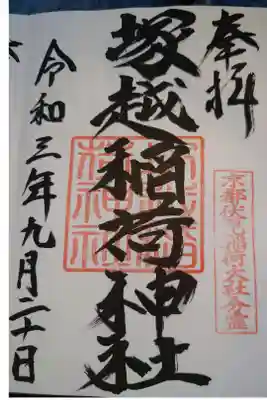 奉拝
京都伏見稲荷大社分霊
塚越稲荷神社
令和三年九月二十日